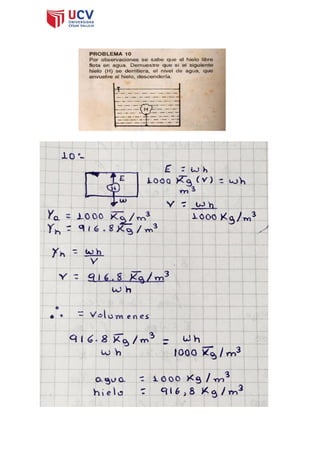 UCV
UNIVERSIDAD
CÉSAR VALLEJO
PROBLEMA 10
Por observaciones se sabe que el hielo libre
flota en agua. Demuestre que si el siguiente
hielo (H) se derritiera, el nivel de agua, que
envuelve al hielo, descendería.
H
10:-
E = wh
E
H
w
1000 Kg/m³ (V) = wh
V = wh / 1000 Kg/m³
γa = 1000 Kg/m³
γh = 916.8 Kg/m³
γh = wh / V
V = 916.8 Kg/m³ / wh
∴ = Volumenes
916.8 Kg/m³ / wh = wh / 1000 Kg/m³
agua = 1000 Kg/m³
hielo = 916,8 Kg/m³